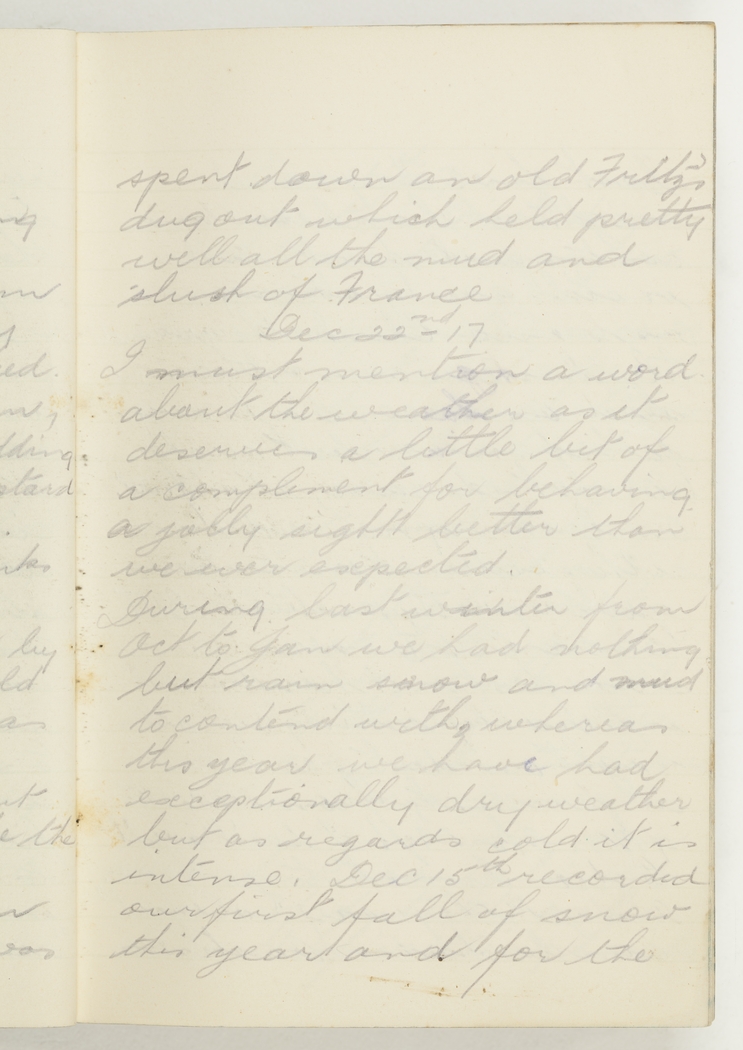 spent down an old Fritz's
dugout which held pretty
well all the mud and
slush of France
Dec 22nd 17
I must mention a word
about the weather as it
deserves a little bit of
a compliment for behaving
a jolly sight better than
we ever expected.
During last winter from
Oct to Jan we had nothing
but rain snow and mud
to contend with, whereas
this year we have had
exceptionally dry weather
but as regards cold it is
intense. Dec 15th recorded
our first fall of snow
this year and for the